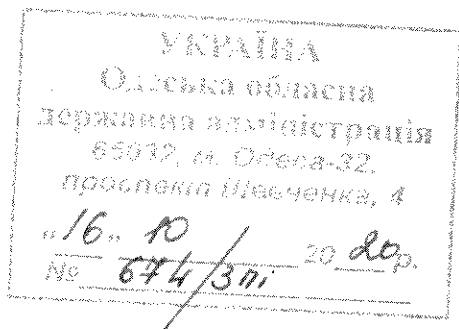 УКРАЇНА
Одеська обласна
державна адміністрація
65032, м. Одеса-32,
проспект Шевченка, 4
„16„ 10 20 20р.
№ 674/3пі